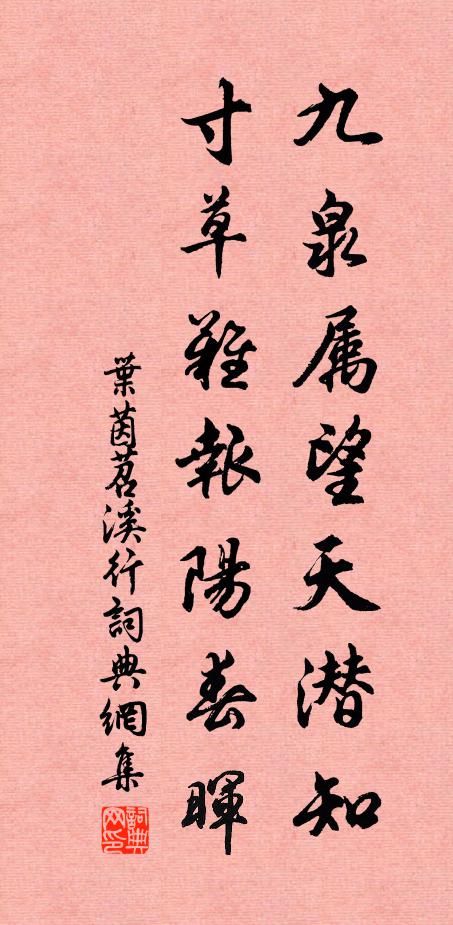 九泉属望天潜知
寸草難報陽春暉
葉茵苕溪行詞典網集
詞典
网印